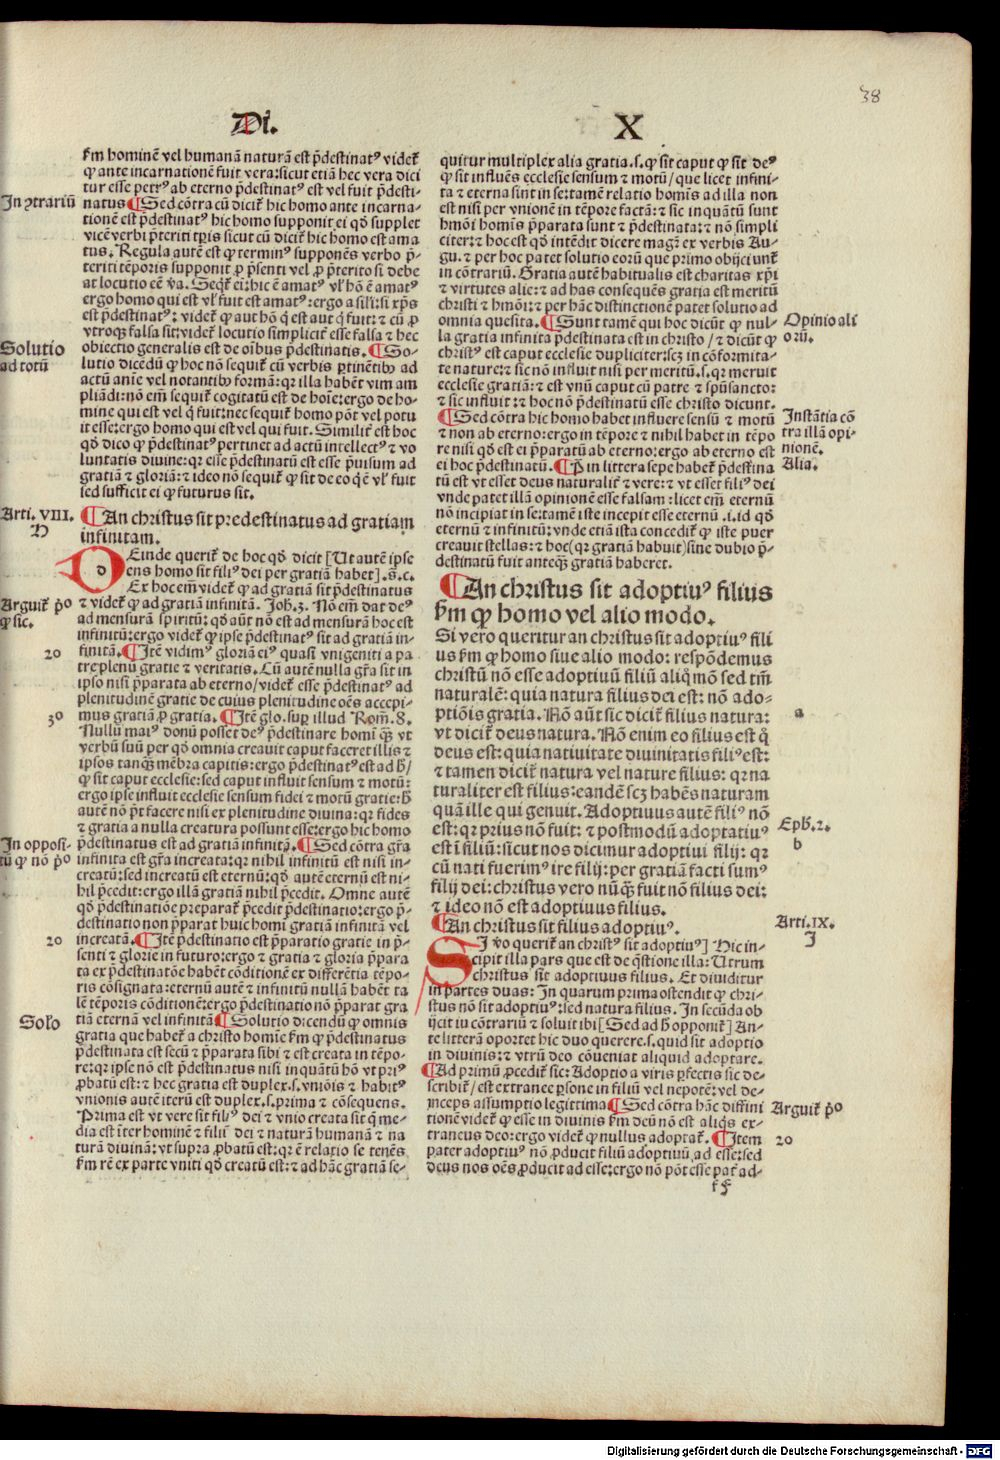 38
Di. X
s̄m hominē vel humanā naturā est p̄destinatꝰ videt̄
ꝙ ante incarnationē fuit vera: sicut etiā hec vera dici
tur esse petrꝰ ab eterno p̄destinatꝰ est vel fuit p̄desti-
In ꝯtrariū
natus ¶ Sed cōtra cū dicit̄ hic homo ante incarna-
tionē est p̄destinatꝰ hic homo supponit ei qd̄ supplet
vicē verbi p̄teriti tp̄ris sicut cū dicit̄ hic homo est ama
tus. Regula autē est ꝙ terminꝰ supponēs verbo p̄-
teriti tēporis supponit ꝓ p̄senti vel ꝓ p̄terito si debe
at locutio eē v̄a. Seqt̄ ei: hic ē amatꝰ vl̓ hō ē amatꝰ
ergo homo qui est vl̓ fuit est amatꝰ: ergo a sil̓i: si xp̄s
est p̄destinatꝰ: videt̄ ꝙ aut hō q̇ est aut q̇ fuit: ⁊ cū ꝓ
vtroqꝫ falsa sit: videt̄ locutio simplicit̄ esse falsa ⁊ hec
Solutio
ad totū
obiectio generalis est de oībus p̄destinatis. ¶ So-
lutio dicēdū ꝙ hoc nō sequit̄ cū verbis ꝑtinētibꝫ ad
actū anīe vel notantibꝫ formā: qꝛ illa habēt vim am
pliādi: nō em̄ sequit̄ cogitatū est de hoīe: ergo de ho-
mine qui est vel q̇ fuit: nec sequit̄ homo pōt vel potu
it esse: ergo homo qui est vel qui fuit. Similit̄ est hoc
qd̄ dico ꝙ p̄destinatꝰ pertinet ad actū intellectꝰ ⁊ vo
luntatis divine: qꝛ esse p̄destinatū est esse p̄uisum ad
gratiā ⁊ gloriā: ⁊ ideo nō sequit̄ ꝙ sit de eo qē vl̓ fuit
sed sufficit ei ꝙ futurus sit.
Arti. VIII.
¶ An christus sit predestinatus ad gratiam
infinitam.
d
Einde querit̄ de hoc qd̄ dicit [Ut autē ipse
ens homo sit filiꝰ dei per gratiā habet]. s̄. c.
Ex hoc em̄ videt̄ ꝙ ad gratiā sit p̄destinatus
Arguit̄ p̄o
ꝙ sic.
⁊ videt̄ ꝙ ad gratiā infinitā. Joh̄. 3. Nō em̄ dat deꝰ
ad mensurā spiritū: qd̄ aūt nō est ad mensurā hoc est
infinitū: ergo videt̄ ꝙ ipse p̄destinatꝰ sit ad gratiā in-
2o
finitā. ¶ Itē vidimꝰ gloriā eiꝰ quasi vnigeniti a pa
tre plenū gratie ⁊ veritatis. Cū autē nulla gr̄a sit in
ipso nisi p̄parata ab eterno/ videt̄ esse p̄destinatꝰ ad
plenitudinē gratie de cuius plenitudine oēs accepi-
3o
mus gratiā ꝓ gratia. ¶ Itē glo. suꝑ illud Rom̄. 8.
Nullū maiꝰ donū posset deꝰ p̄destinare homī qꝫ̄ vt
verbū suū per qd̄ omnia creauit caput faceret illis ⁊
ipsos tanqꝫ̄ mēbra capitis: ergo p̄destinatꝰ est ad h̄/
ꝙ sit caput ecclesie: sed caput influit sensum ⁊ motū:
ergo ipse influit ecclesie sensum fidei ⁊ motū gratie: h̄
autē nō p̄t facere nisi ex plenitudine diuina: qꝛ fides
⁊ gratia a nulla creatura possunt esse: ergo hic homo
In opposi-
tū ꝙ nō p̄o
p̄destinatus est ad gratiā infinitā. ¶ Sed cōtra gr̄a
infinita est gr̄a increata: qꝛ nihil infinitū est nisi in-
creatū: sed increatū est eternū: qd̄ autē eternū est ni-
hil p̄cedit: ergo illā gratiā nihil p̄cedit. Omne autē
qd̄ p̄destinatiōe preparat̄ p̄cedit p̄destinatio: ergo p̄-
destinatio non p̄parat huic homī gratiā infinitā vel
2o
increatā. ¶ Itē p̄destinatio est p̄paratio gratie in p̄-
senti ⁊ glorie in futuro: ergo ⁊ gratia ⁊ gloria p̄para
ta ex p̄destinatōe habēt cōditionē ex differētia tēpo-
ris cōsignata: eternū autē ⁊ infinitū nullā habēt ta
lē tēporis cōditionē: ergo p̄destinatio nō p̄parat gra
Sol̓o
tiā eternā vel infinitā ¶ Solutio dicendū ꝙ omnis
gratia que habet̄ a christo homīe s̄m ꝙ p̄destinatus
p̄destinata est secū ⁊ p̄parata sibi ⁊ est creata in tēpo-
re: qꝛ ipse nō est p̄destinatus nisi inquātū hō vt priꝰ
ꝓbatū est: ⁊ hec gratia est duplex. s. vniōis ⁊ habitꝰ
vnionis autē iterū est duplex. s. prima ⁊ cōsequens.
Prima est vt vere sit filiꝰ dei ⁊ vnio creata sit q̇ me-
dia est īter hominē ⁊ filiū dei ⁊ naturā humanā ⁊ na
turā diuinā: vt supra ꝓbatū est: qꝛ ē relatio se tenēs
s̄m rē ex parte vniti qd̄ creatū est: ⁊ ad hāc gratiā se-
quitur multiplex alia gratia. s. ꝙ sit caput ꝙ sit deꝰ
ꝙ sit influēs ecclesie sensum ⁊ motū/ que licet infini-
ta ⁊ eterna sint in se: tamē relatio homīs ad illa non
est nisi per vnionē in tēpore factā: ⁊ sic inquātū sunt
hmōi homīs p̄parata sunt ⁊ p̄destinata: ⁊ nō simpli
citer: ⁊ hoc est qd̄ intēdit dicere magr̄ ex verbis Au-
gu. ⁊ per hoc patet solutio eorū que primo obijciunt̄
in cōtrariū. Gratia autē habitualis est charitas xp̄i
⁊ virtutes alie: ⁊ ad has consequēs gratia est meritū
christi ⁊ hmōi: ⁊ per hāc distinctionē patet solutio ad
Opinio ali
orū.
omnia quesita. ¶ Sunt tamē qui hoc dicūt ꝙ nul-
la gratia infinita p̄destinata est in christo/ ⁊ dicūt ꝙ
christꝰ est caput ecclesie dupliciter: scꝫ in cōformita-
te nature: ⁊ sic nō influit nisi per meritū. s. qꝛ meruit
ecclesie gratiā: ⁊ est vnū caput cū patre ⁊ spūsancto:
⁊ sic influit: ⁊ hoc nō p̄destinatū esse christo dicunt.
Instātia cō
tra illā opi-
nionē.
Alia.
¶ Sed cōtra hic homo habet influere sensū ⁊ motū
⁊ non ab eterno: ergo in tēpore ⁊ nihil habet in tēpo
re nisi qd̄ est ei p̄paratū ab eterno: ergo ab eterno est
ei hoc p̄destinatū. ¶ P̄. in littera sepe habet̄ p̄destina
tū est vt esset deus naturalit̄ ⁊ vere: ⁊ vt esset filiꝰ dei
vnde patet illā opinionē esse falsam: licet em̄ eternū
nō incipiat in se: tamē iste incepit esse eternū .i. id qd̄
eternū ⁊ infinitū: vnde etiā ista concedit̄ ꝙ iste puer
creauit stellas: ⁊ hoc (qꝛ gratiā habuit) sine dubio p̄-
destinatū fuit anteqꝫ̄ gratiā haberet.
¶ An christus sit adoptiuꝰ filius
s̄m ꝙ homo vel alio modo.
Si vero queritur an christus sit adoptiuꝰ fili
us s̄m ꝙ homo siue alio modo: respōdemus
christū nō esse adoptiuū filiū aliqͣ mō sed tm̄
naturalē: quia natura filius dei est: nō ado-
a
ptiōis gratia. Nō aūt sic dicit̄ filius natura:
vt dicit̄ deus natura. Nō enim eo filius est q̊
deus est: quia natiuitate diuinitatis filiꝰ est:
⁊ tamen dicit̄ natura vel nature filius: qꝛ na
turaliter est filius: eandē scꝫ habēs naturam
quā ille qui genuit. Adoptiuus autē filiꝰ nō
Eph̄. 2.
b
est: qꝛ prius nō fuit: ⁊ postmodū adoptatiuꝰ
est ī filiū: sicut nos dicimur adoptiui filij: qꝛ
cū nati fuerimꝰ ire filij: per gratiā facti sumꝰ
filij dei: christus vero nūqꝫ̄ fuit nō filius dei:
⁊ ideo nō est adoptiuus filius.
Arti. IX.
¶ An christus sit filius adoptiuꝰ.
SI v̄o querit̄ an christꝰ sit adoptiuꝰ] Hic in-
cipit illa pars que est de q̄stione illa: Utrum
christus sit adoptiuus filius. Et diuiditur
in partes duas: In quarum prima ostendit ꝙ chri-
stus nō sit adoptiuꝰ: sed natura filius. In secūda ob
ijcit in cōtrariū ⁊ soluit ibi [Sed ad h̄ opponit̄] An-
te litterā oportet hic duo querere. s. quid sit adoptio
in diuinis: ⁊ vtrū deo cōueniat aliquid adoptare.
¶ Ad primū ꝓcedit̄ sic: Adoptio a viris ꝑfectis sic de-
scribit̄/ est extranee ꝑsone in filiū vel nepotē: vel de-
Arguit̄ p̄o
inceps assumptio legittima ¶ Sed cōtra hāc diffini
tionē videt̄ ꝙ esse in diuinis s̄m deū nō est aliqͣs ex-
2o
traneus deo: ergo videt̄ ꝙ nullus adoptat̄. ¶ Item
pater adoptiuꝰ nō ꝓducit filiū adoptiuū ad esse: sed
deus nos oēs ꝓducit ad esse: ergo nō pōt esse pat̄ ad-
Digitalisierung gefördert durch die Deutsche Forschungsgemeinschaft - DFG